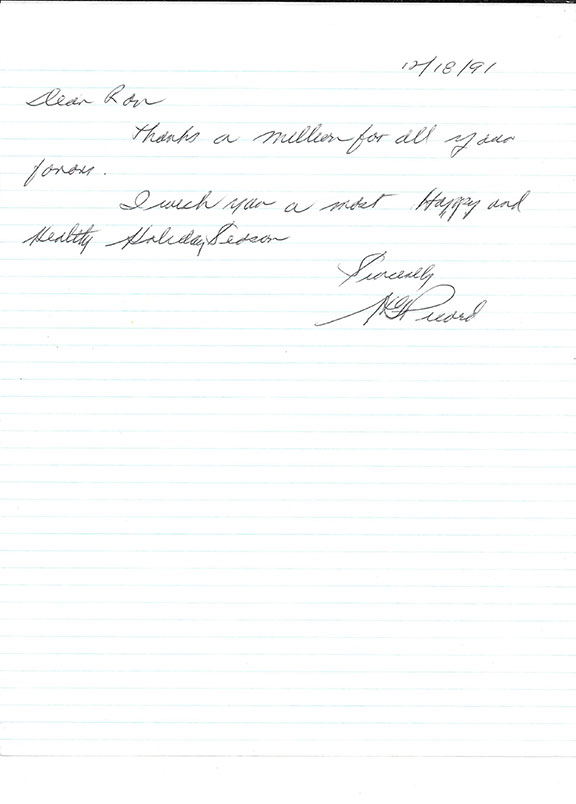 12/18/91
Dear Ron
Thanks a million for all your
favors.
I wish you a most Happy and
Healthy Holiday Season
Sincerely
Picard